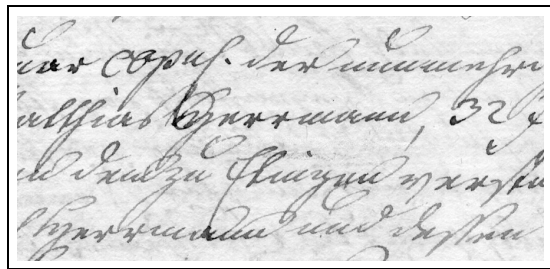 uar copul. der nunmehri
atthias Herrmann, 32 J
und dem zu Ebingen versto
Herrmann und dessen